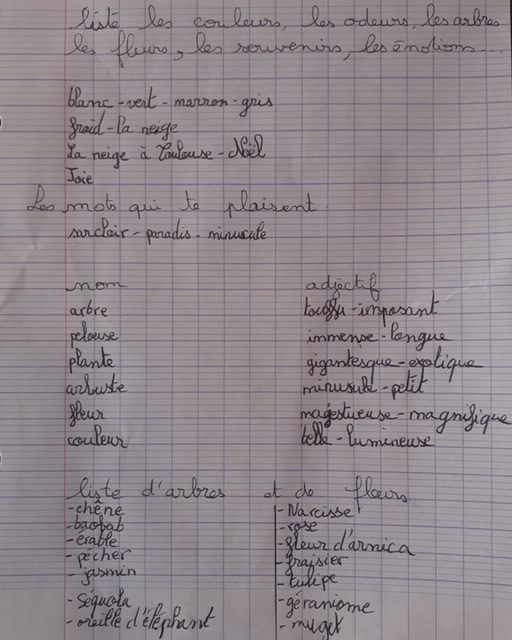 liste les couleurs, les odeurs, les arbres
les fleurs, les souvenirs, les émotions...
blanc - vert - marron - gris
froid - la neige
La neige à Toulouse - Noël
Joie
Les mots qui te plaisent.
sarcloir - paradis - minuscule
nom adjectif
arbre touffu - imposant
pelouse immense - longue
plante gigantesque - exotique
arbuste minuscule - petit
fleur magestueuse - magnifique
couleur belle - lumineuse
liste d'arbres et de fleurs
- chêne - Narcisse
- baobab - rose
- érable - fleur d'arnica
- pêcher - fraisier
- jasmin - tulipe
- Séquoia - géraniome
- oreille d'éléphant - muget